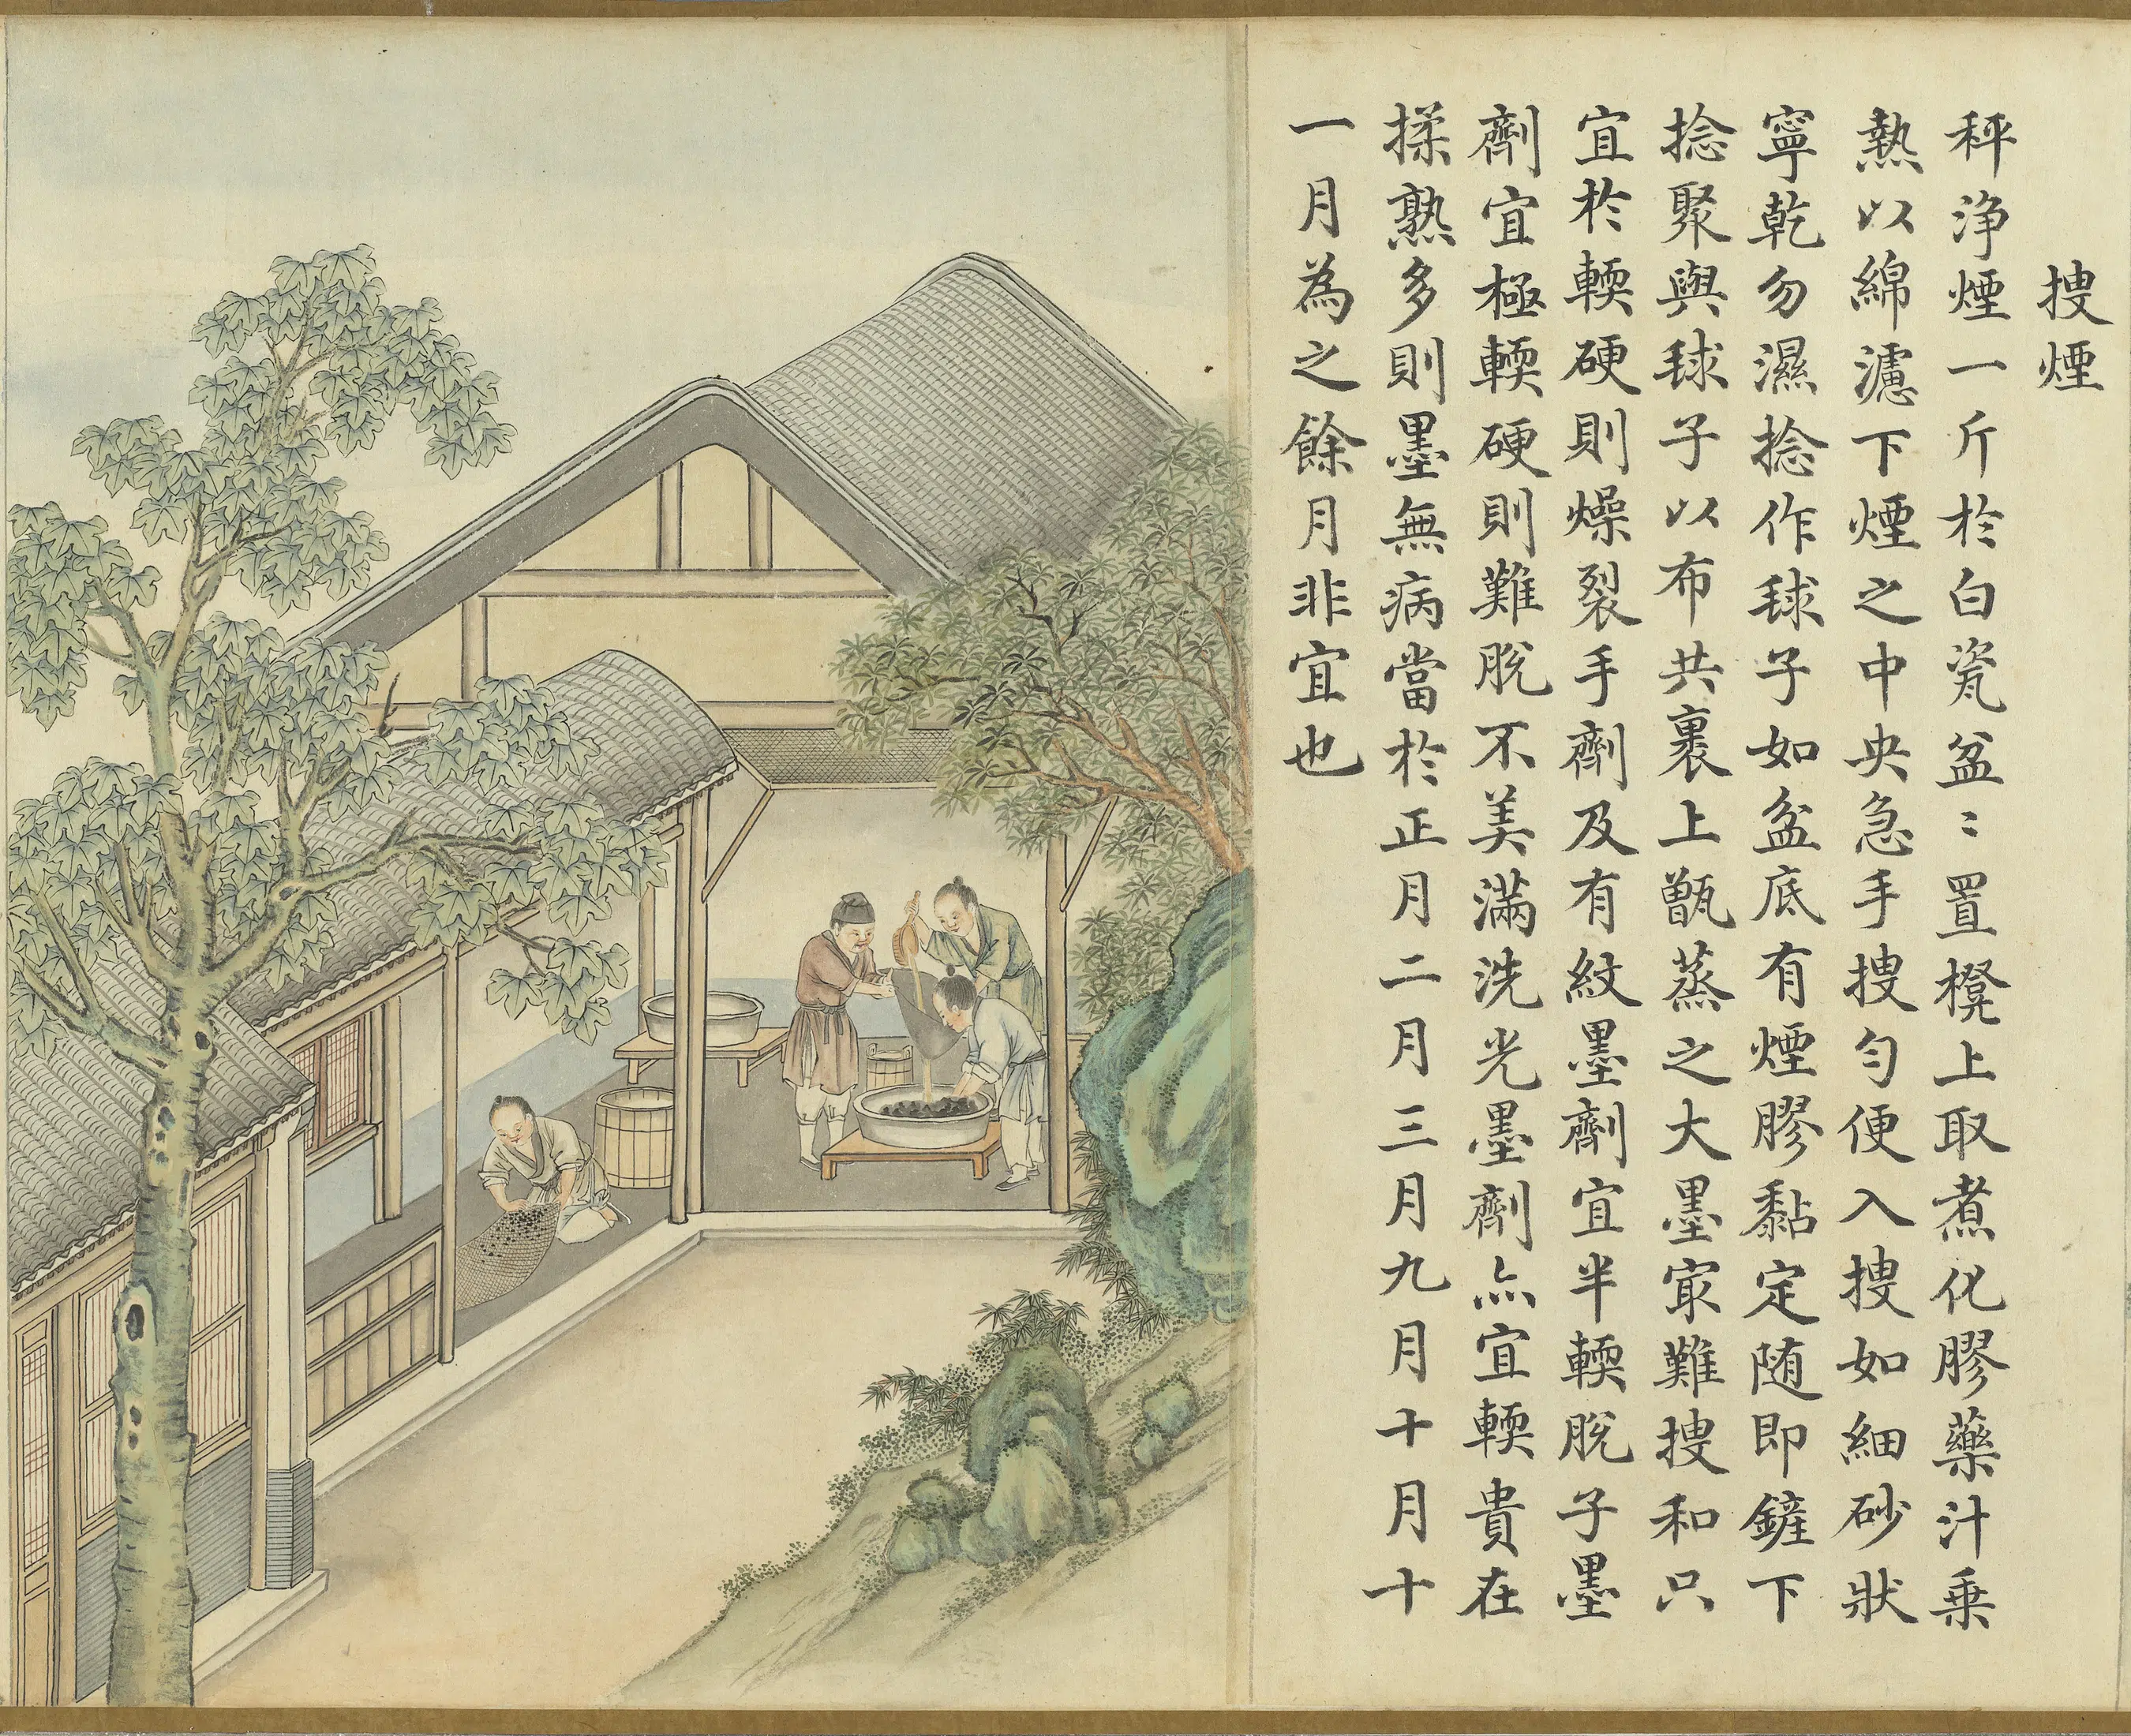 搜煙
秤淨煙一斤於白瓷盆〻置櫈上取煮化膠藥汁乘
熱以綿濾下煙之中央急手搜勻便入搜如細砂狀
寧乾勿濕捻作毬子如盆底有煙膠黏定随即鏟下
捻聚與毬子以布共裹上甑蒸之大墨㝡難搜和只
宜於輭硬則燥裂手劑及有紋墨劑宜半輭脫子墨
劑宜極輭硬則難脫不美滿洗光墨劑亦宜輭貴在
揉熟多則墨無病當於正月二月三月九月十月十
一月為之餘月非宜也